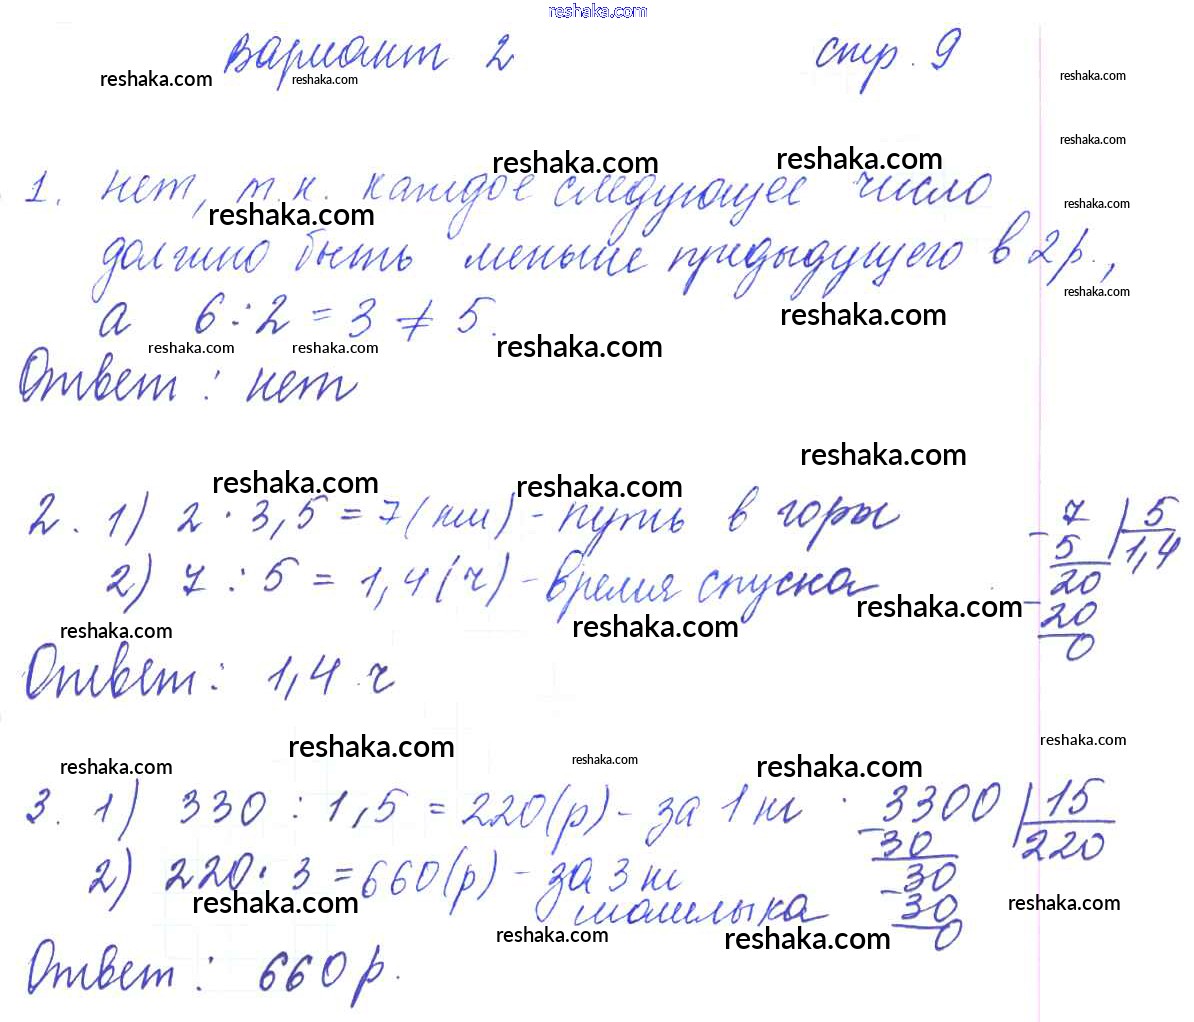 reshaka.com
Вариант 2 стр. 9
reshaka.com reshaka.com reshaka.com
reshaka.com
reshaka.com reshaka.com
1. нет, т.к. каждое следующее число
reshaka.com reshaka.com
должно быть меньше предыдущего в 2 р.,
reshaka.com
а 6 : 2 = 3 ≠ 5.
reshaka.com
reshaka.com reshaka.com reshaka.com
Ответ : нет
reshaka.com
reshaka.com reshaka.com
2. 1) 2 · 3,5 = 7 (км) - путь в горы 7 | 5
- 5 1,4
2) 7 : 5 = 1,4 (ч) - время спуска 20
reshaka.com
- 20
reshaka.com reshaka.com
0
Ответ : 1,4 ч
reshaka.com reshaka.com
reshaka.com reshaka.com reshaka.com
3. 1) 330 : 1,5 = 220 (р) - за 1 кг 3300 | 15
- 30 220
2) 220 · 3 = 660 (р) - за 3 кг - 30
reshaka.com reshaka.com
шашлыка 30
reshaka.com reshaka.com
0
Ответ : 660 р.